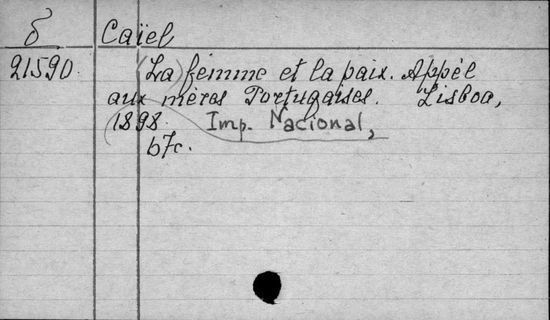 δ Caïel
21590. (La) femme et la paix. Appél
aux mères Portugaises. Lisboa,
1898. Imp. Nacional,
b7c.